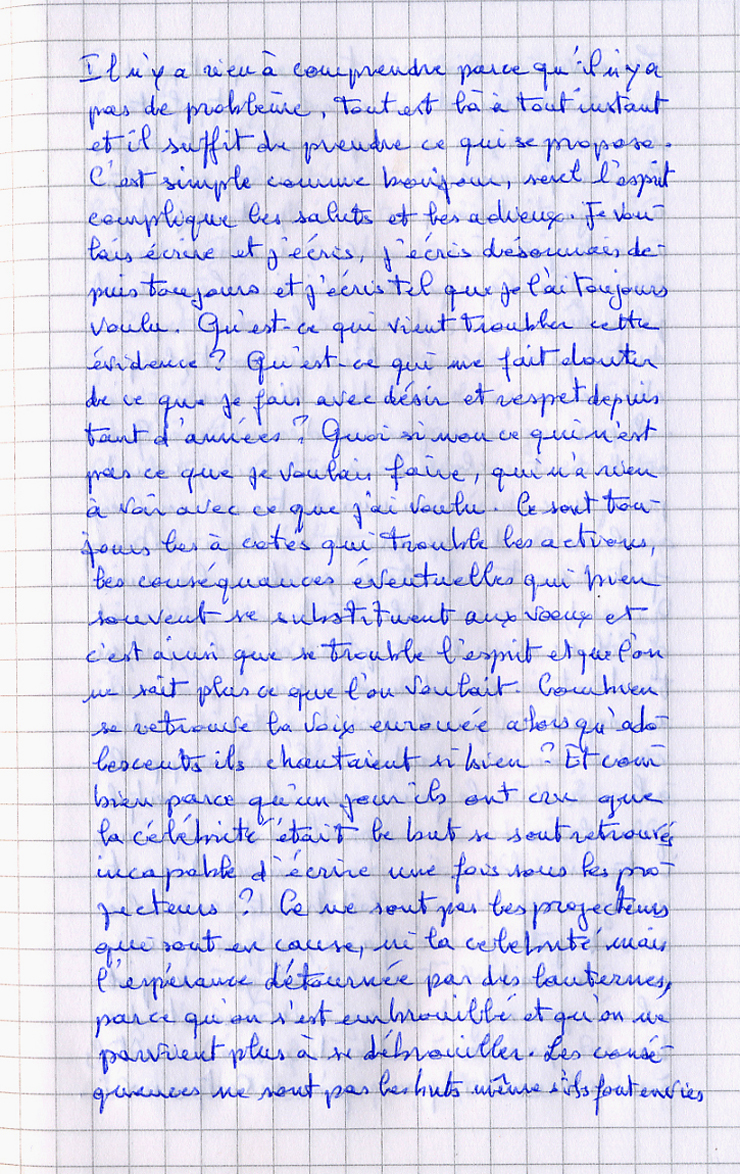 Il n'y a rien à comprendre parce qu'il n'y a
pas de problème, tout est là à tout instant
et il suffit de prendre ce qui se propose.
C'est simple comme bonjour, seul l'esprit
complique les saluts et les adieux. Je vou-
lais écrire et j'écris, j'écris désormais de-
puis toujours et j'écris tel que je l'ai toujours
voulu. Qu'est-ce qui vient troubler cette
évidence ? Qu'est-ce qui me fait douter
de ce que je fais avec désir et respet depuis
tant d'années ? Quoi si non ce qui n'est
pas ce que je voulais faire, qui n'a rien
à voir avec ce que j'ai voulu. Ce sont tou-
jours les à cotés qui trouble les actions,
les conséquances éventuelles qui bien
souvent se substituent aux voeux et
c'est ainsi que se trouble l'esprit et que l'on
ne sait plus ce que l'on voulait. Combien
se retrouve la voix enrouée alors qu'ado-
lescents ils chantaient si bien ? Et com-
bien parce qu'un jour ils ont cru que
la célébrité était le but se sont retrouvés
incapable d'écrire une fois sous les pro-
jecteurs ? Ce ne sont pas les projecteurs
qui sont en cause, ni la celebrité mais
l'espérance détournée par des lanternes,
parce qu'on s'est embrouillé et qu'on ne
parvient plus à se débrouiller. Les consé-
quences ne sont pas les buts même s'ils font envies